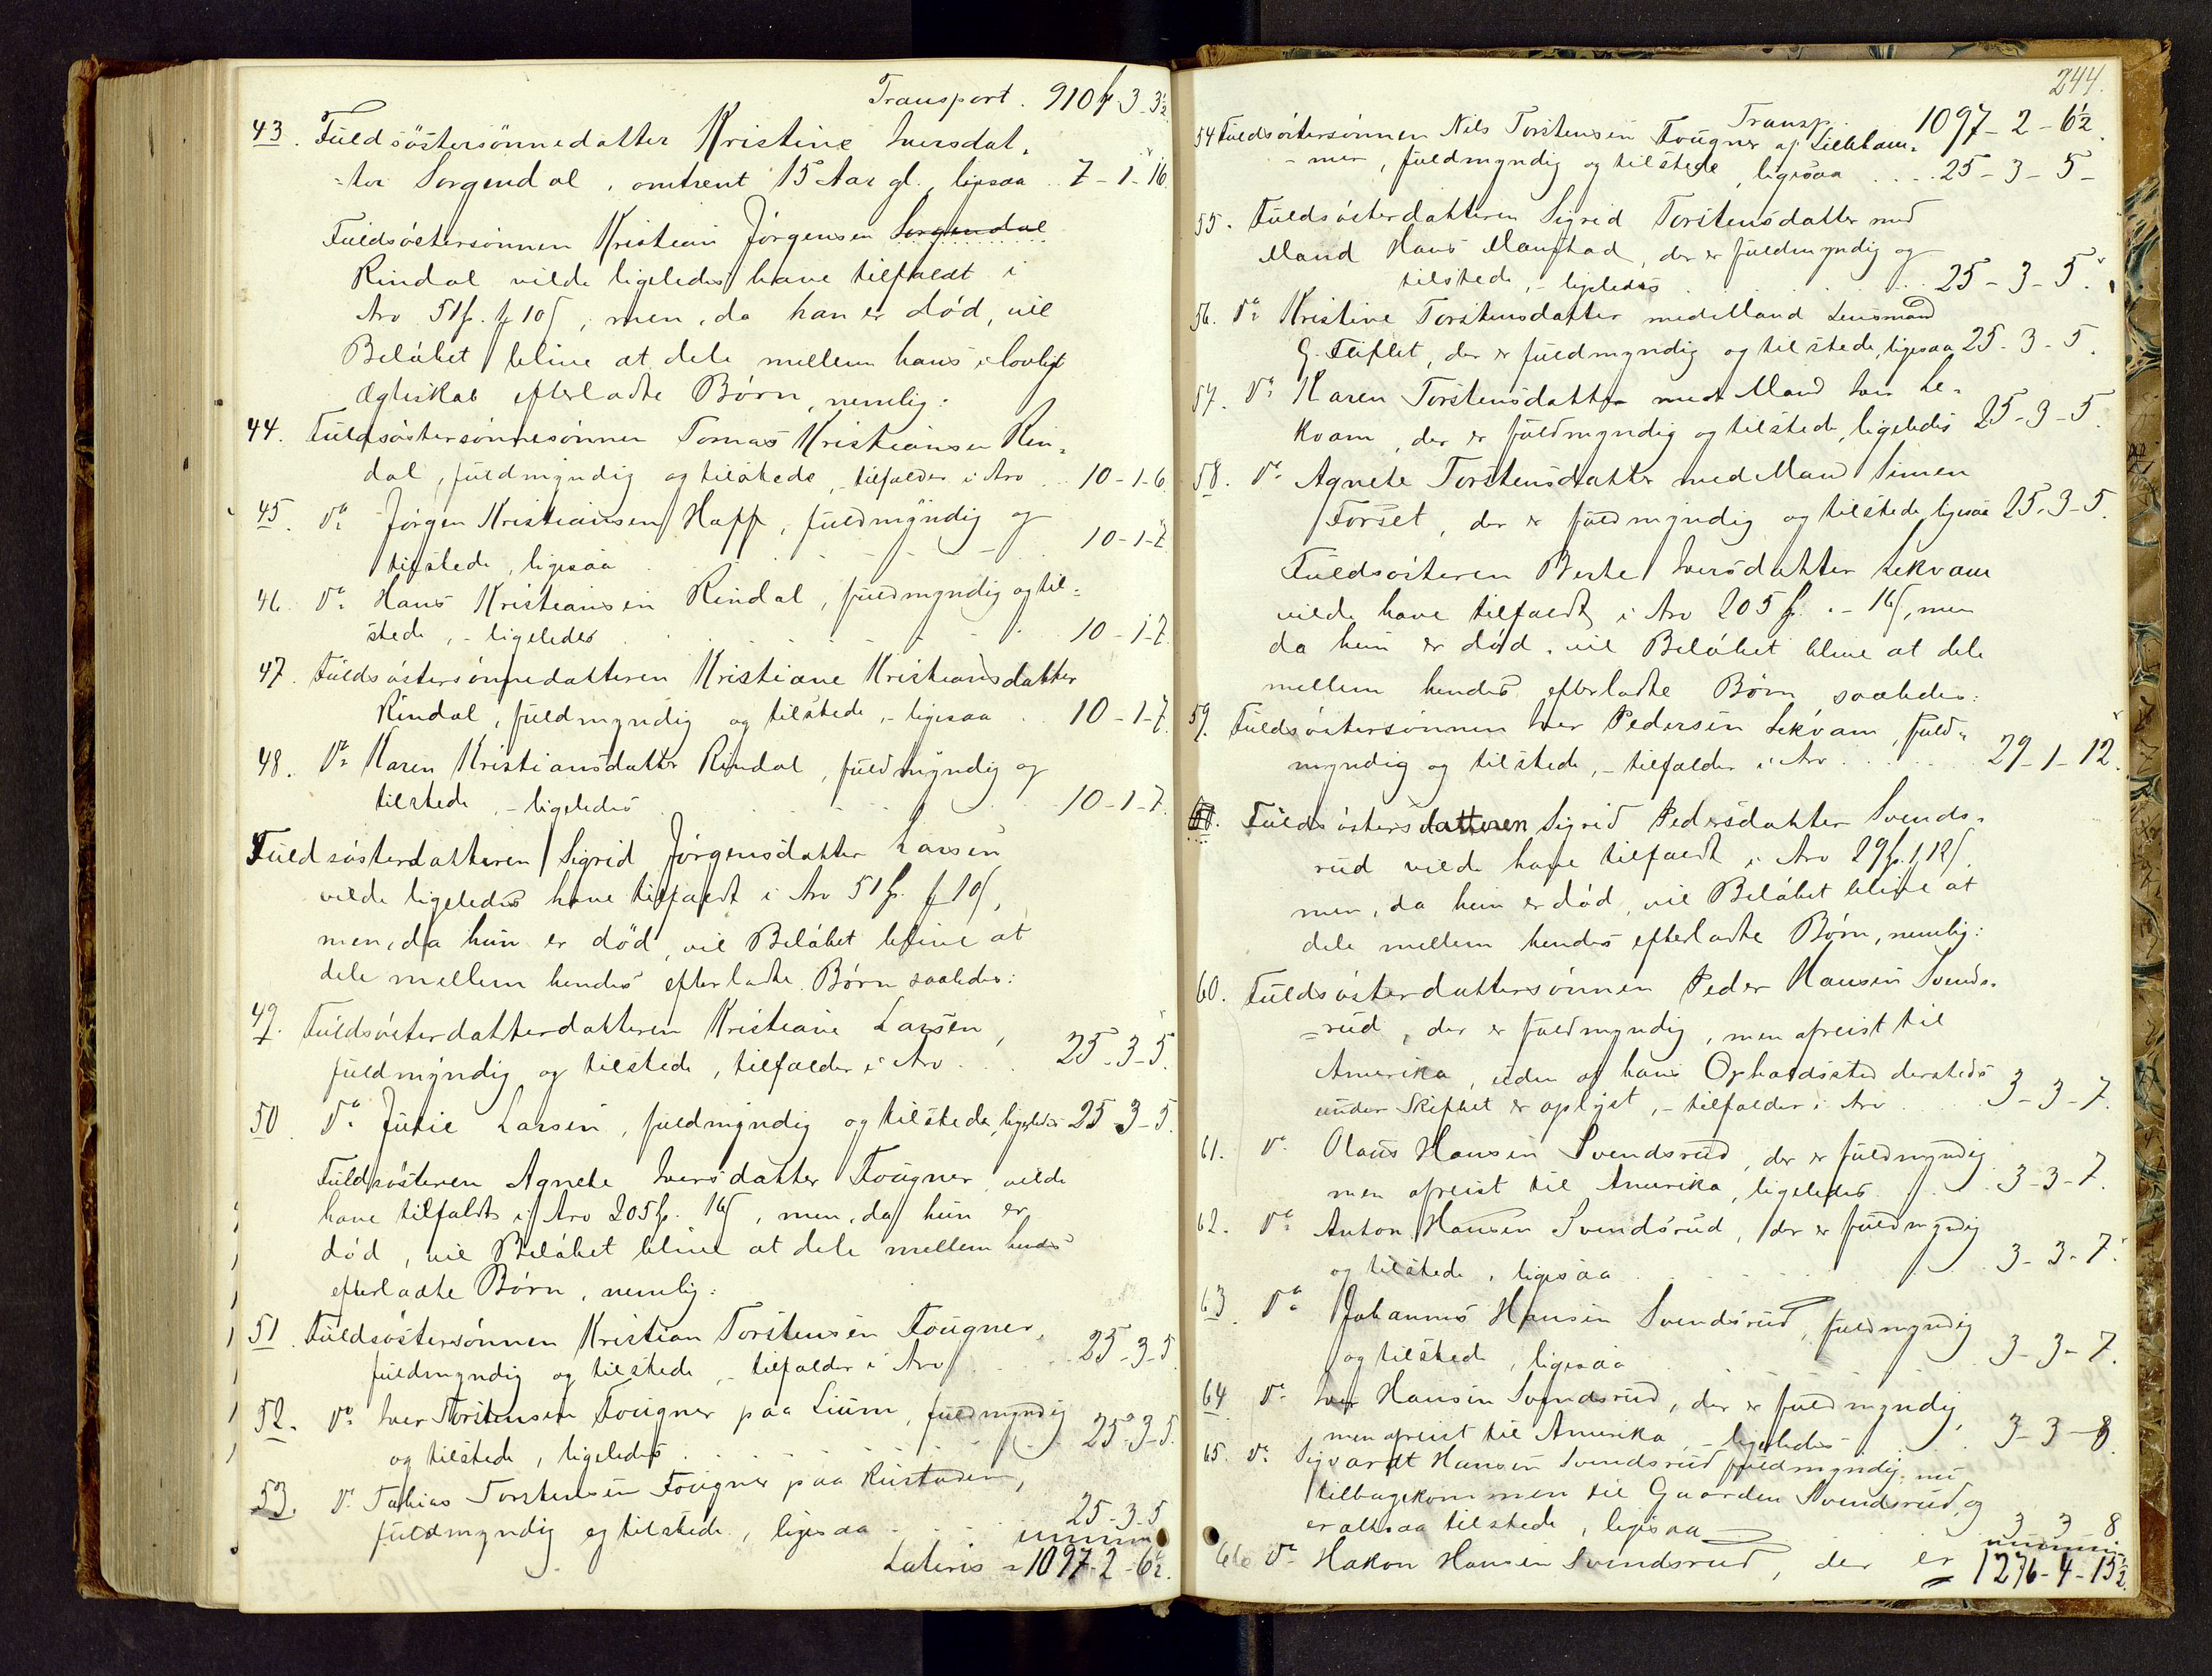 Transport. 910f-3-3½
43. Fuldsöstersönnedatter Kristine Iversdat-
-ter Sorgendal, omtrent 15 Aar gl., ligesaa .. 7-1-16.
Fuldsöstersönnen Kristian Jörgensen Sorgendal
Rindal vilde ligeledes have tilfaldt i
Arv 51f. 1 10, men, da han er död, vil
Belöbet blive at dele mellem hans i lovligt
Ægteskab efterladte Börn, nemlig:
44. Fuldsöstersönnesönnen Tomas Kristiansen Rin-
dal, fuldmyndig og tilstede, - tilfalder i Arv ... 10-1-6
45. Do Jörgen Kristiansen Happ, fuldmyndig og
tilstede, ligesaa . . . 10-1-7
46. Do Hans Kristiansen Rindal, fuldmyndig og til-
stede, - ligeledes . . . 10-1-7.
47. Fuldsöstersönnedatteren Kristiane Kristiansdatter
Rindal, fuldmyndig og tilstede, - ligesaa . . 10-1-7.
48. Do Karen Kristiansdatter Rindal, fuldmyndig og
tilstede, - ligeledes . . . 10-1-7.
Fuldsösterdatteren Sigrid Jörgensdatter Larsen
vilde ligeledes have tilfaldt i Arv 51f. 1 10,
men, da hun er död, vil Belöbet blive at
dele mellem hendes efterladte Börn saaledes:
49. Fuldsösterdatterdatteren Kristiane Larsen,
fuldmyndig og tilstede, tilfalder i Arv . . . 25-3-5.
50. Do Julie Larsen, fuldmyndig og tilstede, ligeledes 25-3-5.
Fuldsösteren Agnete Iversdatter Fougner vilde
have tilfaldt i Arv 205f. 16, men, da hun er
död, vil Belöbet blive at dele mellem hendes
efterladte Börn, nemlig:
51. Fuldsöstersönnen Kristian Torstensen Fougner,
fuldmyndig og tilstede, - tilfalder i Arv . . . 25-3-5
52. Do Iver Torstensen Fougner paa Lium, fuldmyndig
og tilstede, ligeledes . . . 25-3-5.
53. Do Tobias Torstensen Fougner paa Rustaden,
fuldmyndig og tilstede, ligesaa . . . 25-3-5
Lateris = 1097-2-6½.
244.
Transp. 1097-2-6½.
54 Fuldsöstersönnen Nils Torstensen Fougner af Lilleham-
-mer, fuldmyndig og tilstede, ligesaa . . . 25-3-5-
55. Fuldsösterdatteren Sigrid Torstensdatter med
Mand Hans Maustad, der er fuldmyndig og
tilstede, - ligeledes . . . 25-3-5.
56. Do Kristine Torstensdatter med Mand Lensmand
G. Fliflet, der er fuldmyndig og tilstede, ligesaa 25-3-5.
57. Do Karen Torstensdatter med Mand Iver Le-
kvam, der er fuldmyndig og tilstede, ligeledes 25-3-5.
58. Do Agnete Torstensdatter med Mand Simen
Forset, der er fuldmyndig og tilstede, ligesaa 25-3-5.
Fuldsösteren Berte Iversdatter Lekvam
vilde have tilfaldt i Arv 205f. - 16, men
da hun er död, vil Belöbet blive at dele
mellem hendes efterladte Börn saaledes:
59. Fuldsöstersönnen Iver Pedersen Lekvam, fuld-
myndig og tilstede, - tilfalder i Arv . . . 29-1-12.
60. Fuldsösterdatteren Sigrid Pedersdatter Svends-
rud vilde have tilfaldt i Arv 29f. 1 12.
men, da hun er död, vil Belöbet blive at
dele mellem hendes efterladte Börn, nemlig:
60. Fuldsösterdattersönnen Peder Hansen Svends-
-rud, der er fuldmyndig, men afreist til
Amerika, uden at hans Opholdssted dersteds
under Skiftet er oplyst, - tilfalder i Arv . . . 3-3-7.
61. Do Olaus Hansen Svendsrud, der er fuldmyndig
men afreist til Amerika, ligeledes . . . 3-3-7.
62. Do Anton Hansen Svendsrud, der er fuldmyndig
og tilstede, ligesaa . . . 3-3-7.
63. Do Johannes Hansen Svendsrud, fuldmyndig
og tilstede, ligesaa . . . 3-3-7.
64 Do Iver Hansen Svendsrud, der er fuldmyndig,
men afreist til Amerika, - ligeledes . . . 3-3-8.
65. Do Sigvardt Hansen Svendsrud fuldmyndig, nu
tilbagekommen til Gaarden Svendsrud, og
er altsaa tilstede, ligesaa 3 3 8.
66 Do Hakon Hansen Svendsrud, der er 1276-4-15½.